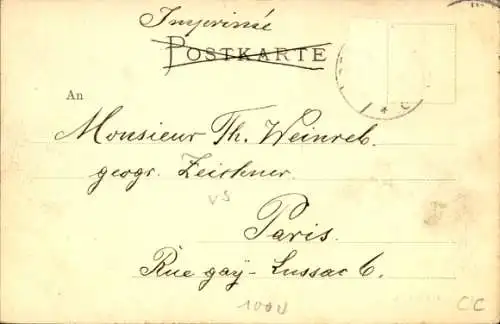 Imprimé
POSTKARTE
An
Monsieur Th. Weinreb.
geogr. Zeichner.
VS
Paris.
Rue gaÿ-Lussac 6.
CC